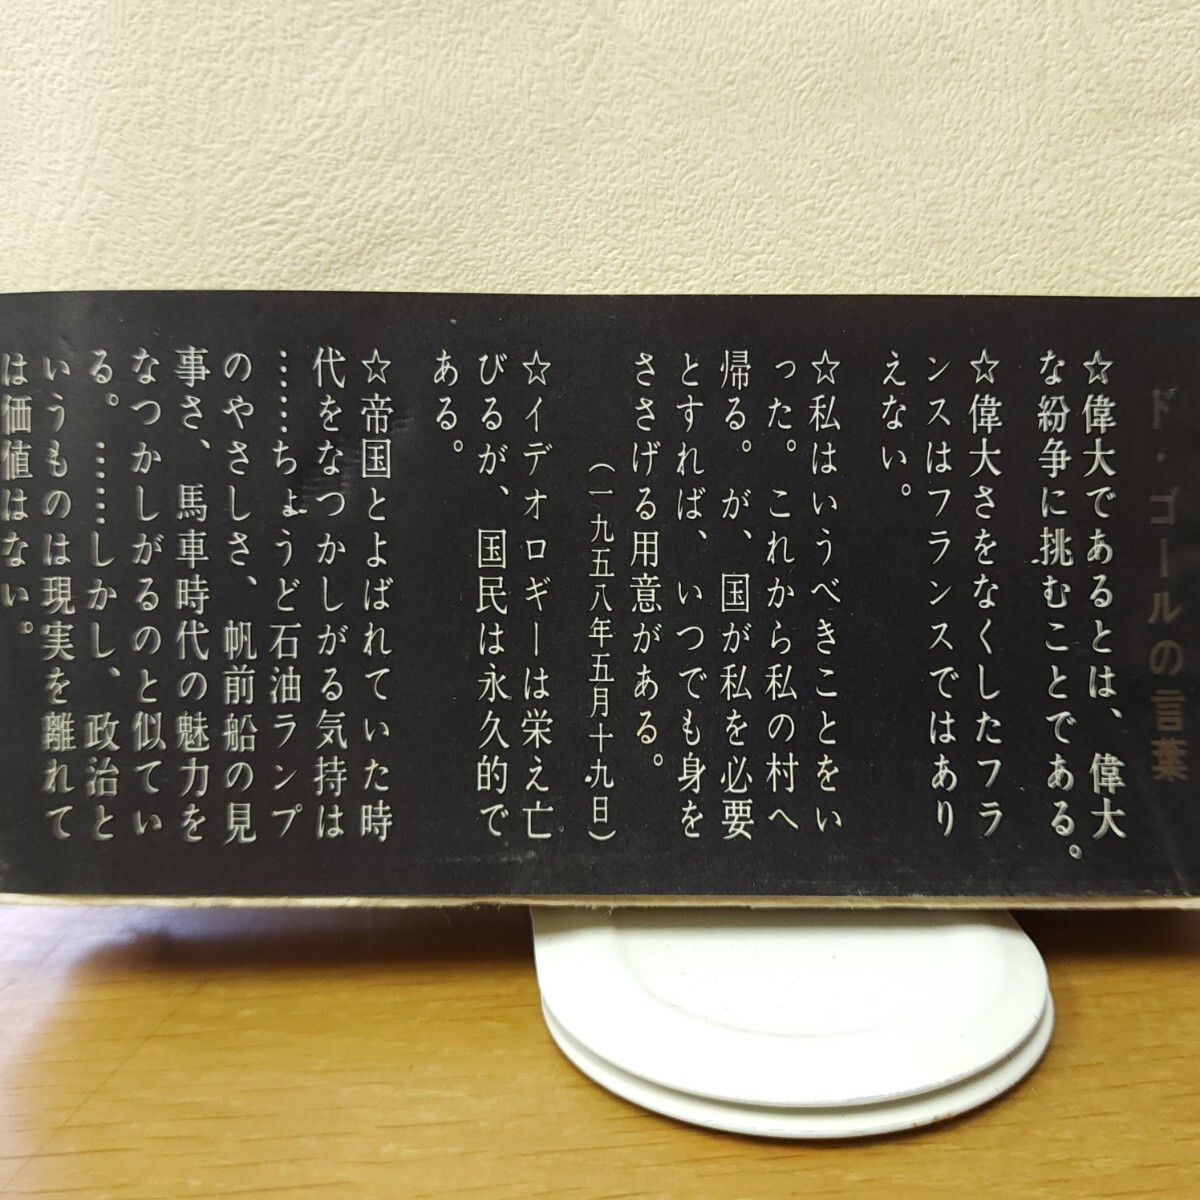 ド・ゴールの言葉
☆偉大であるとは、偉大
な紛争に挑むことである。
☆偉大さをなくしたフラ
ンスはフランスではあり
えない。
☆私はいうべきことをい
った。これから私の村へ
帰る。が、国が私を必要
とすれば、いつでも身を
ささげる用意がある。
（一九五八年五月十九日）
☆イデオロギーは栄え亡
びるが、国民は永久的で
ある。
☆帝国とよばれていた時
代をなつかしがる気持は
……ちょうど石油ランプ
のやさしさ、帆前船の見
事さ、馬車時代の魅力を
なつかしがるのと似てい
る。……しかし、政治と
いうものは現実を離れて
は価値はない。